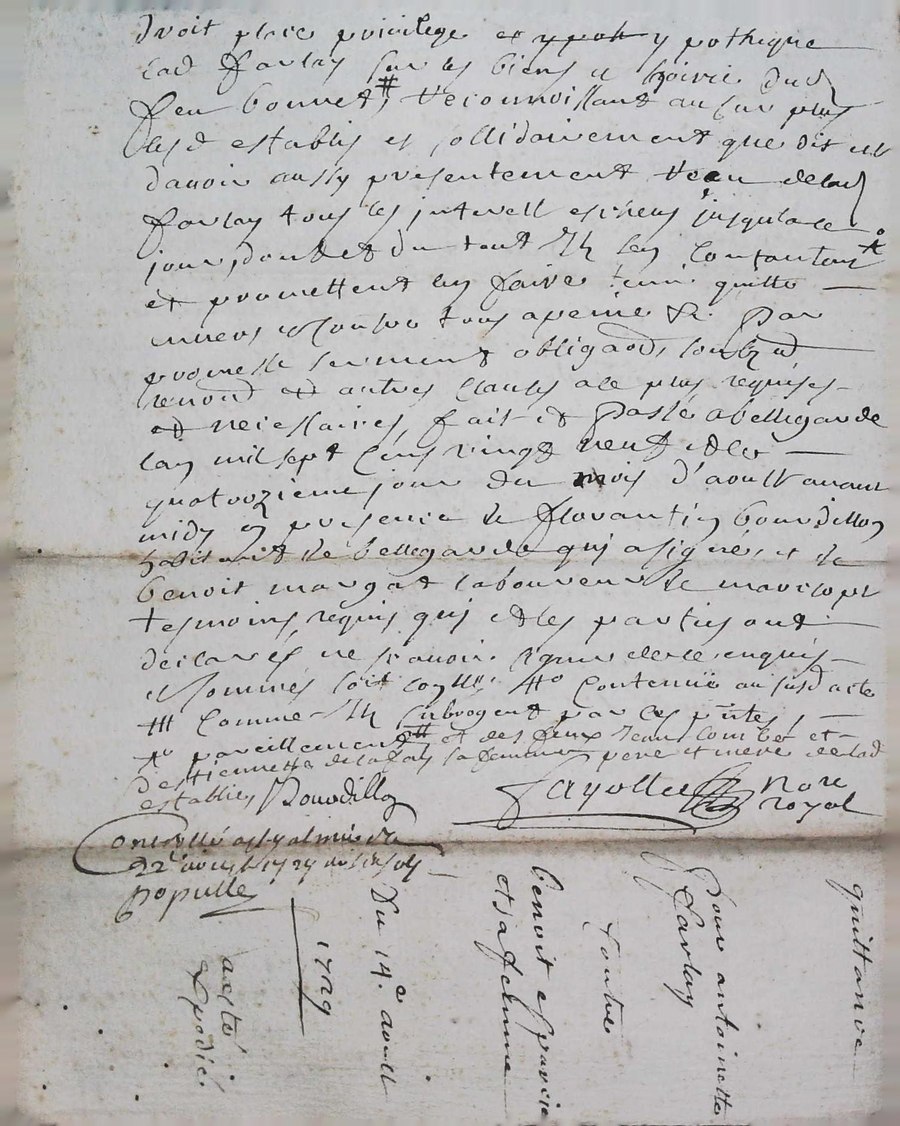 droit place privilege et ypoth ypotheque
lad farlay sur les biens et hoirie dud
feu bonnet # Reconnoissant au sur plus
lesd establis et sollidairement que dit est
davoir aussy presentement Receu de lad
farlay tous les interest escheus jusqu'a ce
jour, dont et du tout Ils sen contantent
et promettent len faire tenir quitte
envers et contre tous a peine &c Par
promesse serment obligaõns soubzõn
renonõn et autres clauses a ce plus requises
et necessaires, fait et Passé a bellegarde
lan mil sept Cens vingt neuf et le
quatorzieme jour du mois d'aoust avant
midy en presence de florantin bourdillon
habitant de bellegarde qui a signé, et de
benoit margat laboureur de
tesmoins requis qui et les parties ont
declarés ne scavoir signer de ce enquis
et sommés soit Conttenüe au susd acte
# comme Ils subrogent par ces pñtes,
pareillement et des feux Jean combet et
destiennette sa femme pere et mere de lad
establie Bourdillon Fayolle Nore
royal
Controllé a st galmier le
22e aoust 1729
Populle
quittance
Pour antoinette
farlay
Contre
benoit
et sa femme
Du 14.e aoust
1729
acte
Expedié